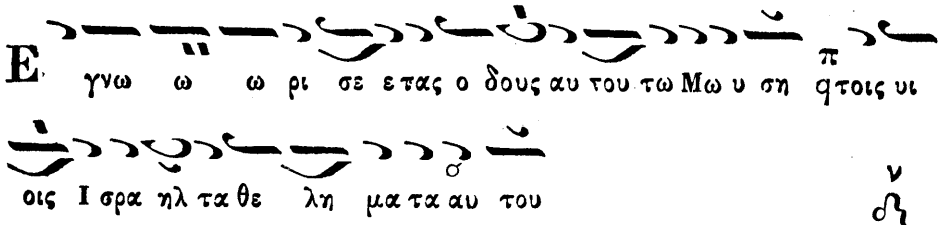 Ε γνω ω ω ρι σε ε τας ο δους αυ του τω Μω υ ση π q τοις υι
οις Ι σρα ηλ τα θε λη μα τα αυ του ν